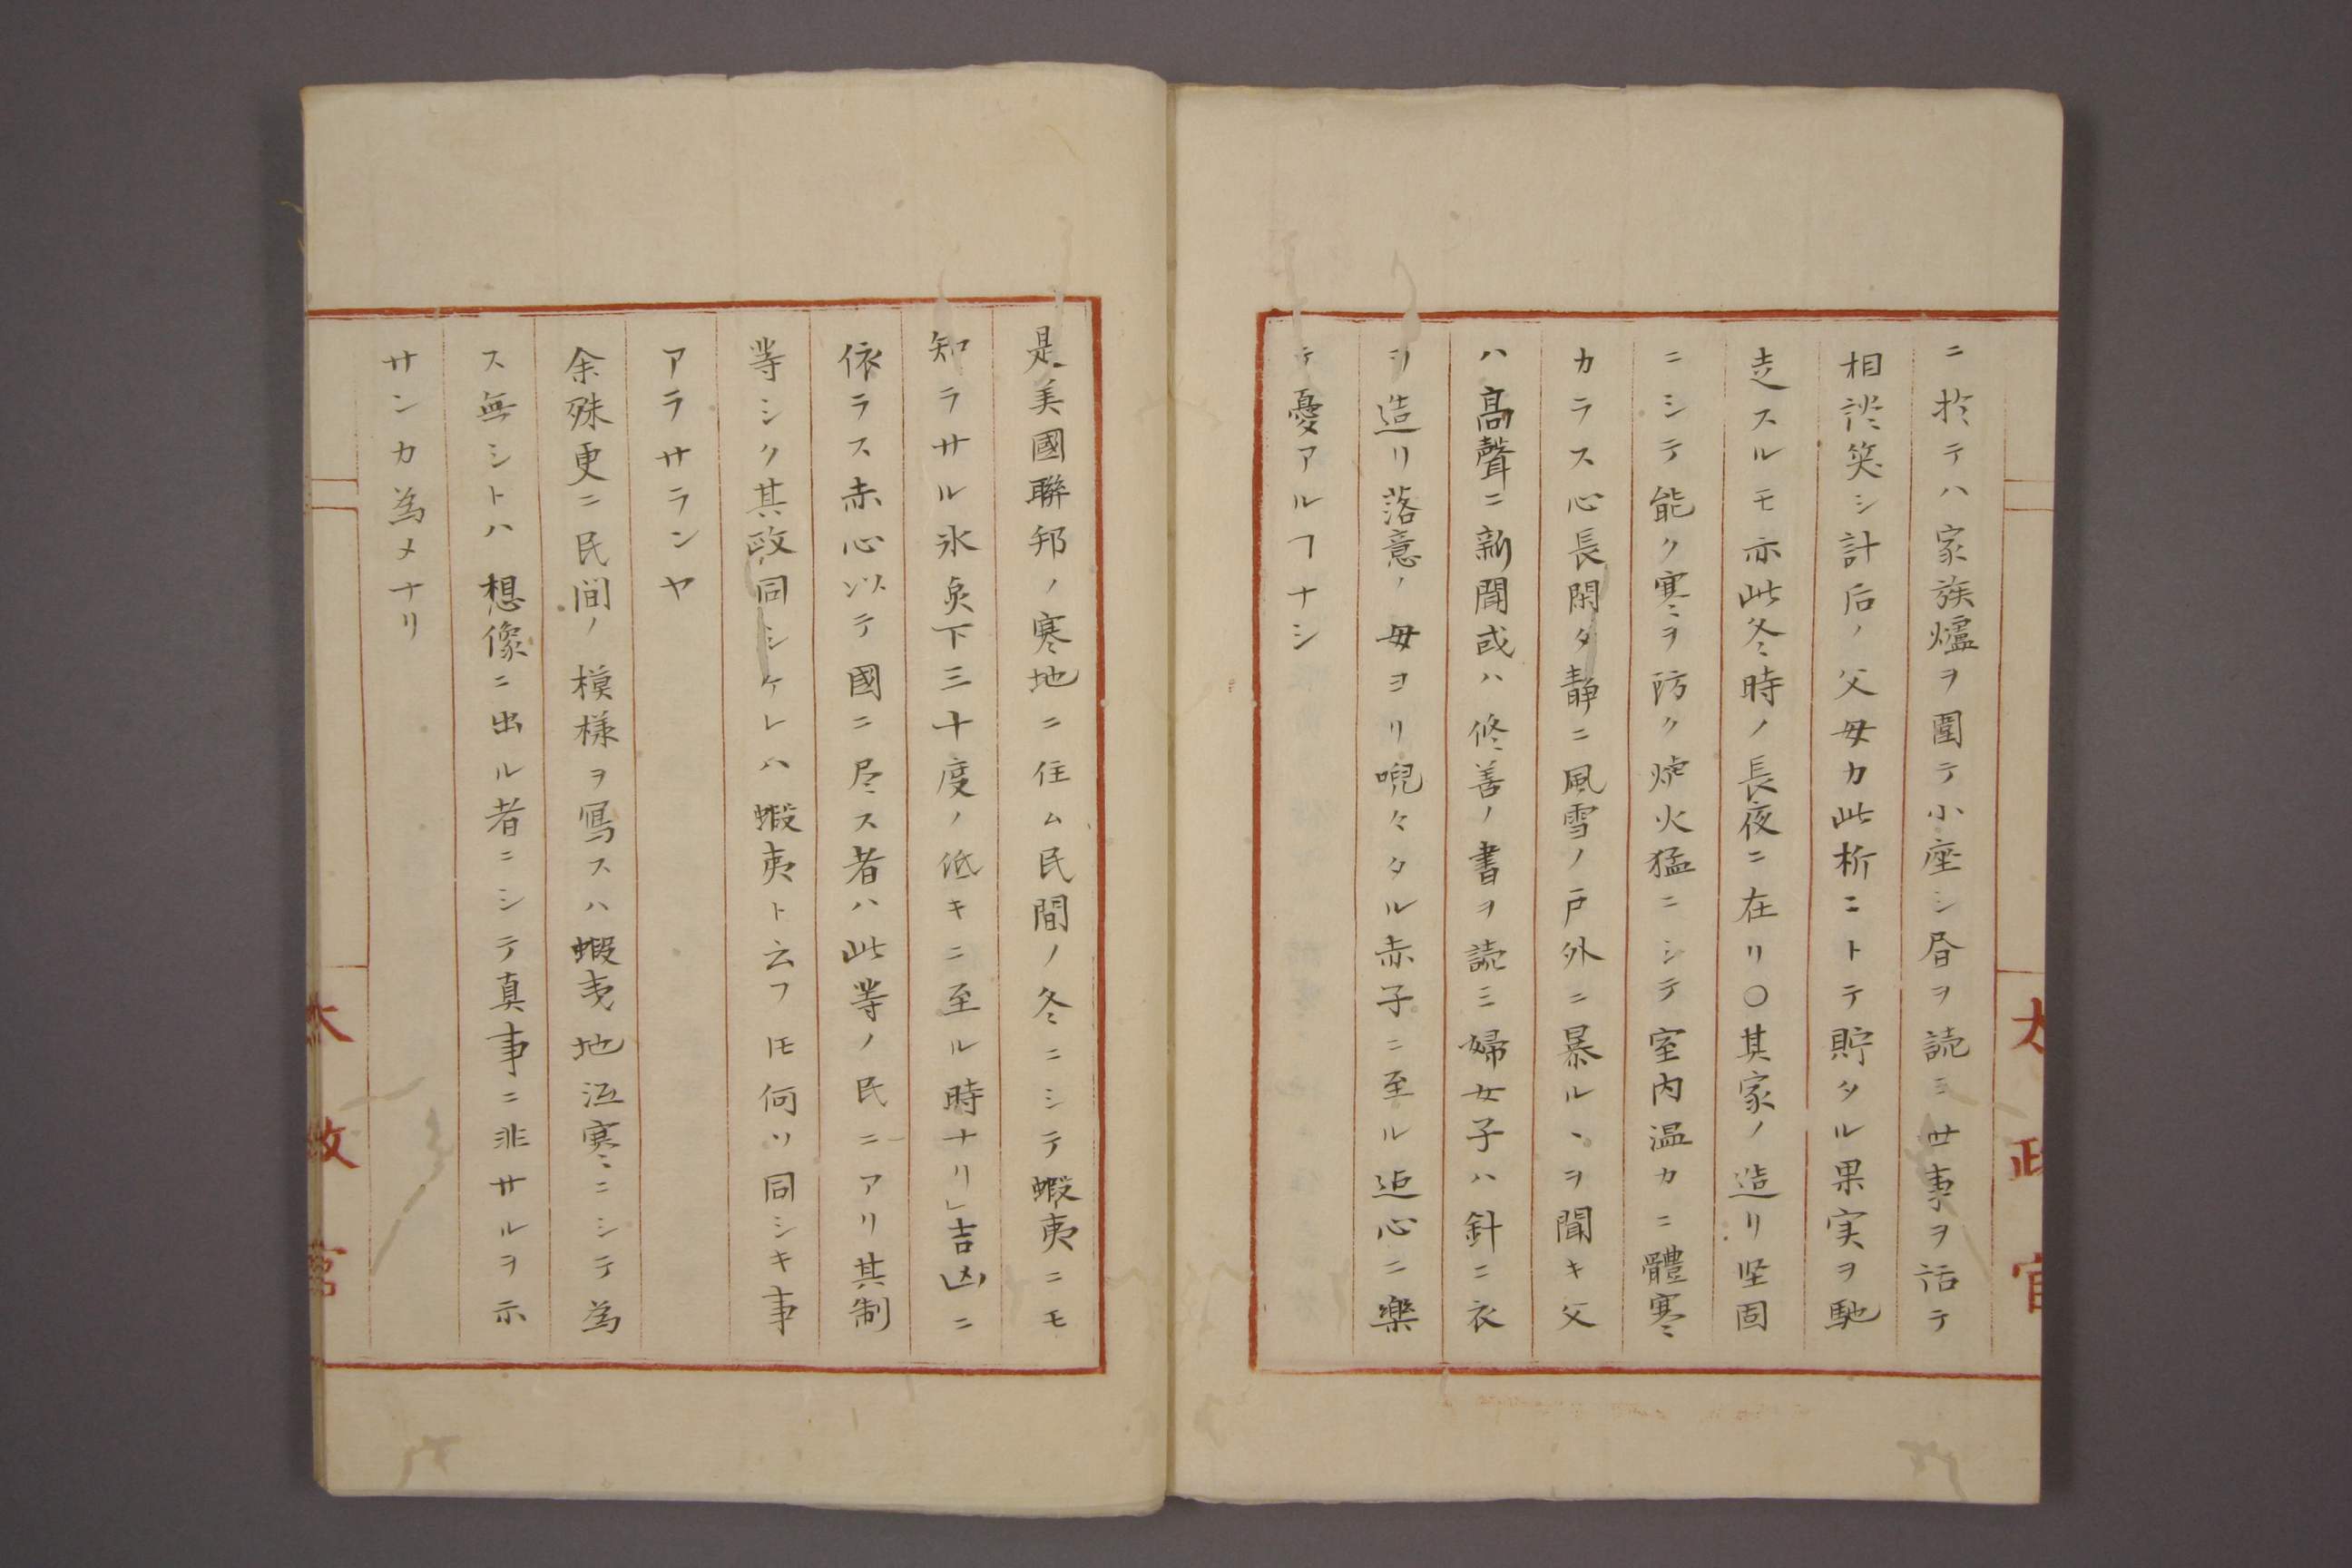 ニ於テハ家族爐ヲ圍テ小座シ昏ヲ読ミ世事ヲ話テ
相談笑シ計后ノ父母カ此折ニトテ貯タル果実ヲ馳
走スルモ亦此冬時ノ長夜ニ在リ〇其家ノ造リ堅固
ニシテ能ク寒ヲ防ク炉火猛ニシテ室内温カニ體寒
カラス心長閑タ静ニ風雪ノ戸外ニ暴ルヽヲ聞キ父
ハ高聲ニ新聞或ハ修善ノ書ヲ読ミ婦女子ハ針ニ衣
ヲ造リ落意ノ毋ヨリ呪々タル赤子ニ至ル迠心ニ樂
テ憂アルヿナシ
太政官
是美國聯邦ノ寒地ニ住ム民間ノ冬ニシテ蝦夷ニモ
知ラサル氷炱下三十度ノ低キニ至ル時ナリ」吉凶ニ
依ラス赤心以テ國ニ尽ス者ハ此等ノ民ニアリ其制
等シク其政同シケレハ蝦夷ト云フ𪜈何ソ同シキ事
アラサランヤ
余殊更ニ民间ノ模様ヲ寫スハ蝦夷地沍寒ニシテ為
ス無シトハ想像ニ出ル者ニシテ真事ニ非サルヲ示
サンカ為メナリ
太政官